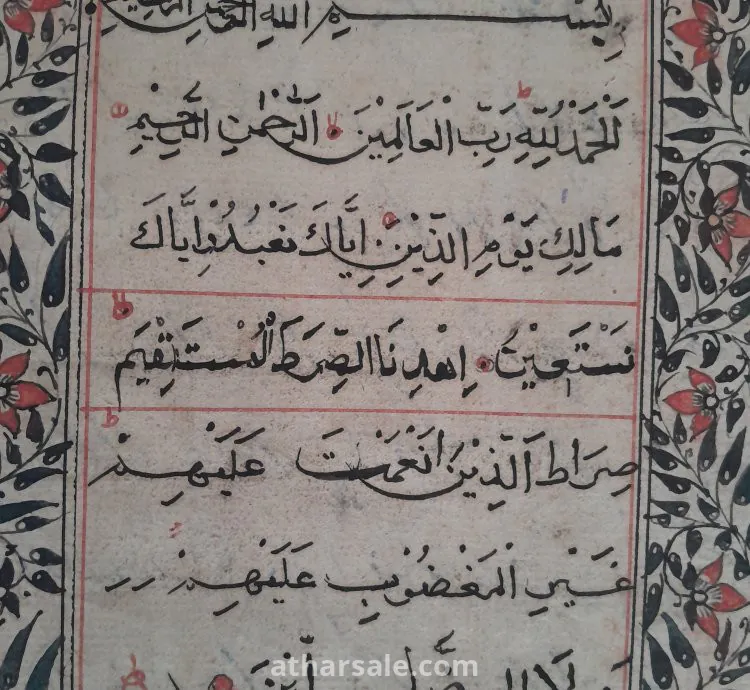 بِسْمِ اللهِ الرَّحْمٰنِ الرَّحِيْمِ
اَلْحَمْدُ لِلّٰهِ رَبِّ الْعَالَمِيْنَ الرَّحْمٰنِ الرَّحِيْمِ
مَالِكِ يَوْمِ الدِّيْنِ اِيَّاكَ نَعْبُدُ وَاِيَّاكَ
نَسْتَعِيْنُ اِهْدِنَا الصِّرَطَ الْمُسْتَقِيْمَ
صِرَاطَ الَّذِيْنَ اَنْعَمْتَ عَلَيْهِمْ
غَيْرِ الْمَغْضُوْبِ عَلَيْهِمْ
وَلَا الضَّالِّيْنَ
atharsale.com